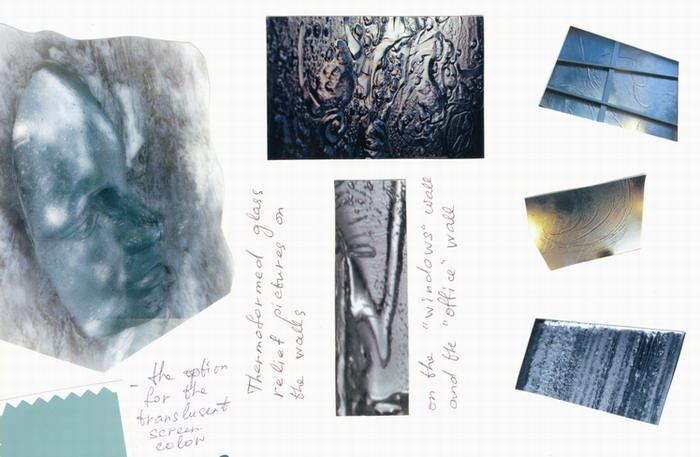 Thermoformed glass
relief pictures on
the walls
on the "windows" wall
and the "office" wall
- the option
for the
translusent
screen
color